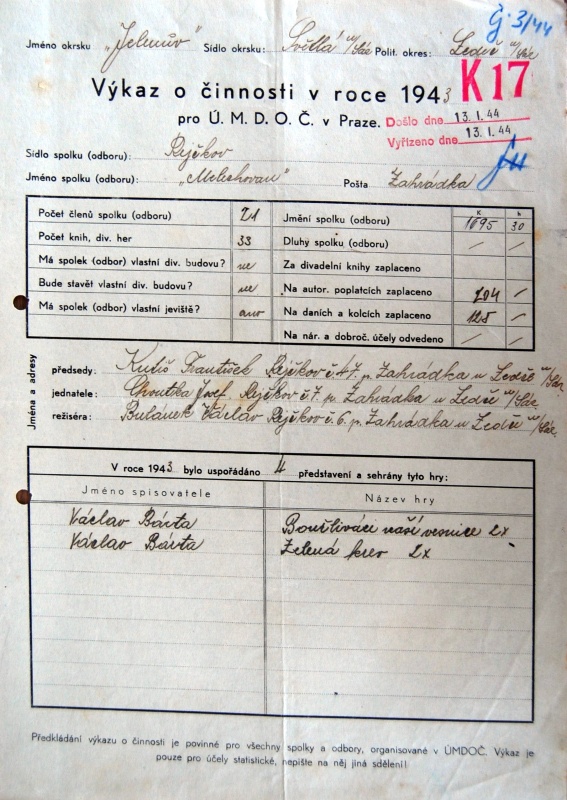 Č 3/44
Jméno okrsku „Jelenův" Sídlo okrsku: Světlá n/Sáz Polit. okres: Ledeč n/Sáz
Výkaz o činnosti v roce 1943 K17
pro Ú. M. D. O. Č. v Praze. Došlo dne 13. I. 44
Vyřízeno dne 13. I. 44
Sídlo spolku (odboru): Rejčkov
Jméno spolku (odboru): „Melechovan" Pošta Zahrádka
K h
Počet členů spolku (odboru) 21 Jmění spolku (odboru) 1695 30
Počet knih, div. her 33 Dluhy spolku (odboru) / /
Má spolek (odbor) vlastní div. budovu? ne Za divadelní knihy zaplaceno
Bude stavět vlastní div. budovu? ne Na autor. poplatcích zaplaceno 204 /
Má spolek (odbor) vlastní jeviště? ano Na daních a kolcích zaplaceno 125 /
Na nár. a dobroč. účely odvedeno / /
Jména a adresy
předsedy: František Rejčkov č. 47. p. Zahrádka u Ledče n/Sáz
jednatele: Choutka Josef. Rejčkov č 7. p. Zahrádka u Ledče n/Sáz
režiséra: Bulánek Václav Rejčkov č. 6. p. Zahrádka u Ledče n/Sáz.
V roce 1943 bylo uspořádáno 4 představení a sehrány tyto hry:
Jméno spisovatele Název hry
Václav Bárta Bouřliváci naší vesnice 2x
Václav Bárta Zelená krev 2x
Předkládání výkazu o činnosti je povinné pro všechny spolky a odbory, organisované v ÚMDOČ. Výkaz je
pouze pro účely statistické, nepište na něj jiná sdělení!